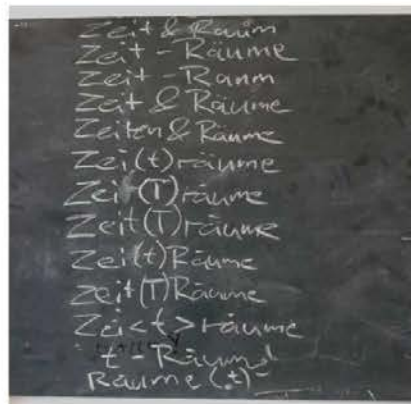 Zeit & Raum
Zeit - Räume
Zeit - Raum
Zeit & Räume
Zeiten & Räume
Zei(t)räume
Zeit(T)räume
Zeit(T)räume
Zei(t)Räume
Zeit(T)Räume
Zei<t>räume
t - Raum
Räume(t)